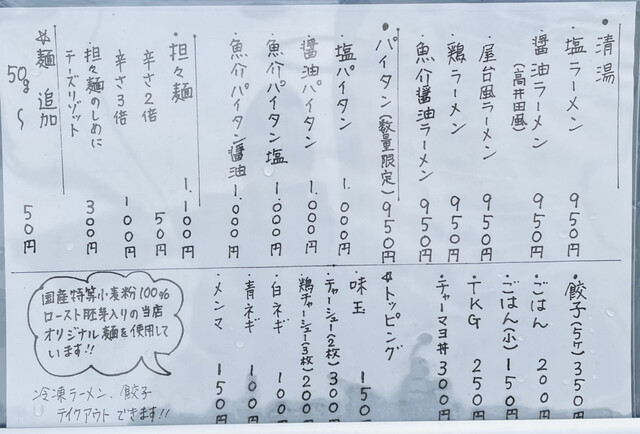 ・清湯
・塩ラーメン 950円
・醤油ラーメン (高井田風) 950円
・屋台風ラーメン 950円
・鶏ラーメン 950円
・魚介醤油ラーメン 950円
・パイタン(数量限定) 950円
・塩パイタン 1.000円
・醤油パイタン 1.000円
・魚介パイタン塩 1.000円
・魚介パイタン醤油 1.000円
・担々麺 1.100円
辛さ2倍 50円
辛さ3倍 100円
担々麺のしめに
チーズリゾット 300円
☆麺 追加
50g〜 50円
・餃子(5ケ) 350円
・ごはん 200円
・ごはん(小) 150円
・TKG 250円
・チャーマヨ丼 300円
☆トッピング
・味玉 150円
・チャーシュー(2枚) 300円
・鶏チャーシュー(3枚) 200円
・白ネギ 100円
・青ネギ 100円
・メンマ 150円
国産特等小麦粉100%
ロースト胚芽入りの当店
オリジナル麺を使用して
います!!
冷凍ラーメン、餃子
テイクアウトできます!!